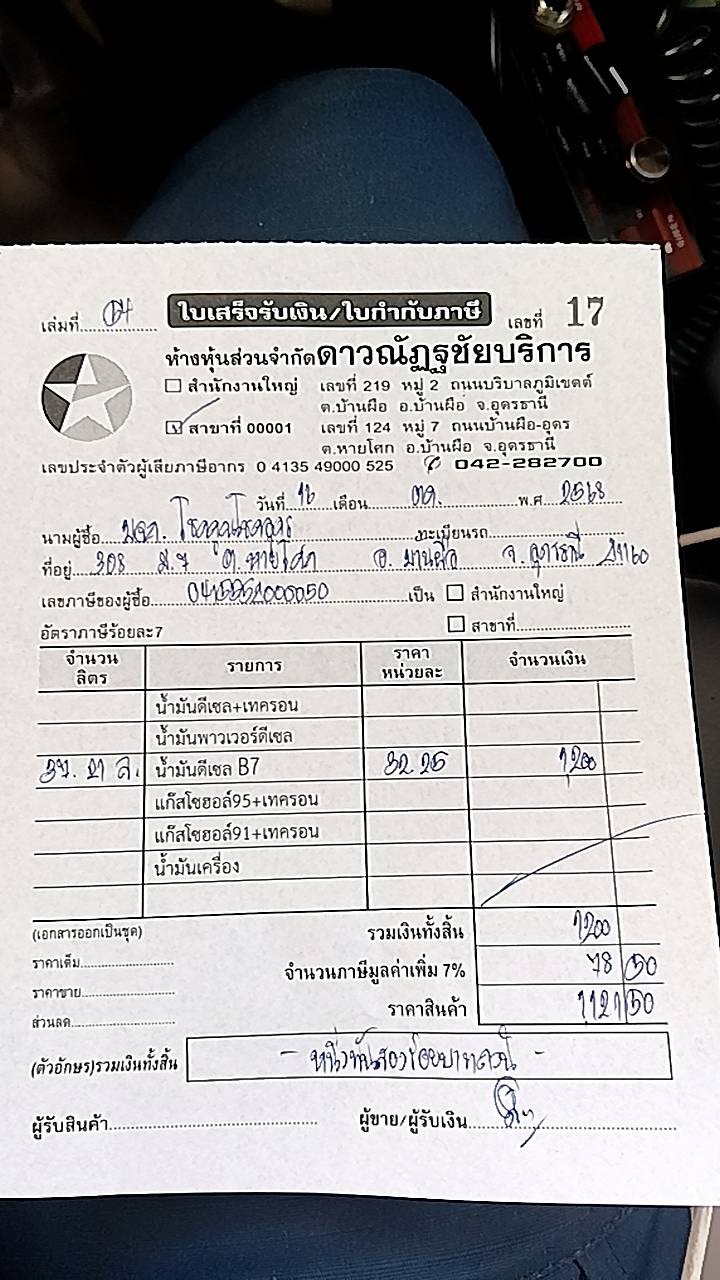 เล่มที่ 04 ใบเสร็จรับเงิน/ใบกำกับภาษี เลขที่ 17
ห้างหุ้นส่วนจำกัดดาวณัฏฐชัยบริการ
สำนักงานใหญ่ เลขที่ 219 หมู่ 2 ถนนบริบาลภูมิเขตต์
ต.บ้านผือ อ.บ้านผือ จ.อุดรธานี
สาขาที่ 00001 เลขที่ 124 หมู่ 7 ถนนบ้านผือ-อุดร
ต.หายโศก อ.บ้านผือ จ.อุดรธานี
เลขประจำตัวผู้เสียภาษีอากร 0 4135 49000 525 042-282700
วันที่ 16 เดือน ตค. พ.ศ. 2568
นามผู้ซื้อ หจก. ทะเบียนรถ
ที่อยู่ 308 ม.7 ต.หายโศก อ. บ้านผือ จ.อุดรธานี 41160
เลขภาษีของผู้ซื้อ เป็น สำนักงานใหญ่
อัตราภาษีร้อยละ7 สาขาที่
จำนวนลิตร รายการ ราคาหน่วยละ จำนวนเงิน
น้ำมันดีเซล+เทครอน
น้ำมันพาวเวอร์ดีเซล
37.21 ล. น้ำมันดีเซล B7 32.25 1200
แก๊สโซฮอล์95+เทครอน
แก๊สโซฮอล์91+เทครอน
น้ำมันเครื่อง
(เอกสารออกเป็นชุด) รวมเงินทั้งสิ้น 1200
ราคาเต็ม จำนวนภาษีมูลค่าเพิ่ม 7% 78 50
ราคาขาย ราคาสินค้า 1121 50
ส่วนลด
(ตัวอักษร)รวมเงินทั้งสิ้น - หนึ่งพันสองร้อยบาทถ้วน -
ผู้รับสินค้า ผู้ขาย/ผู้รับเงิน